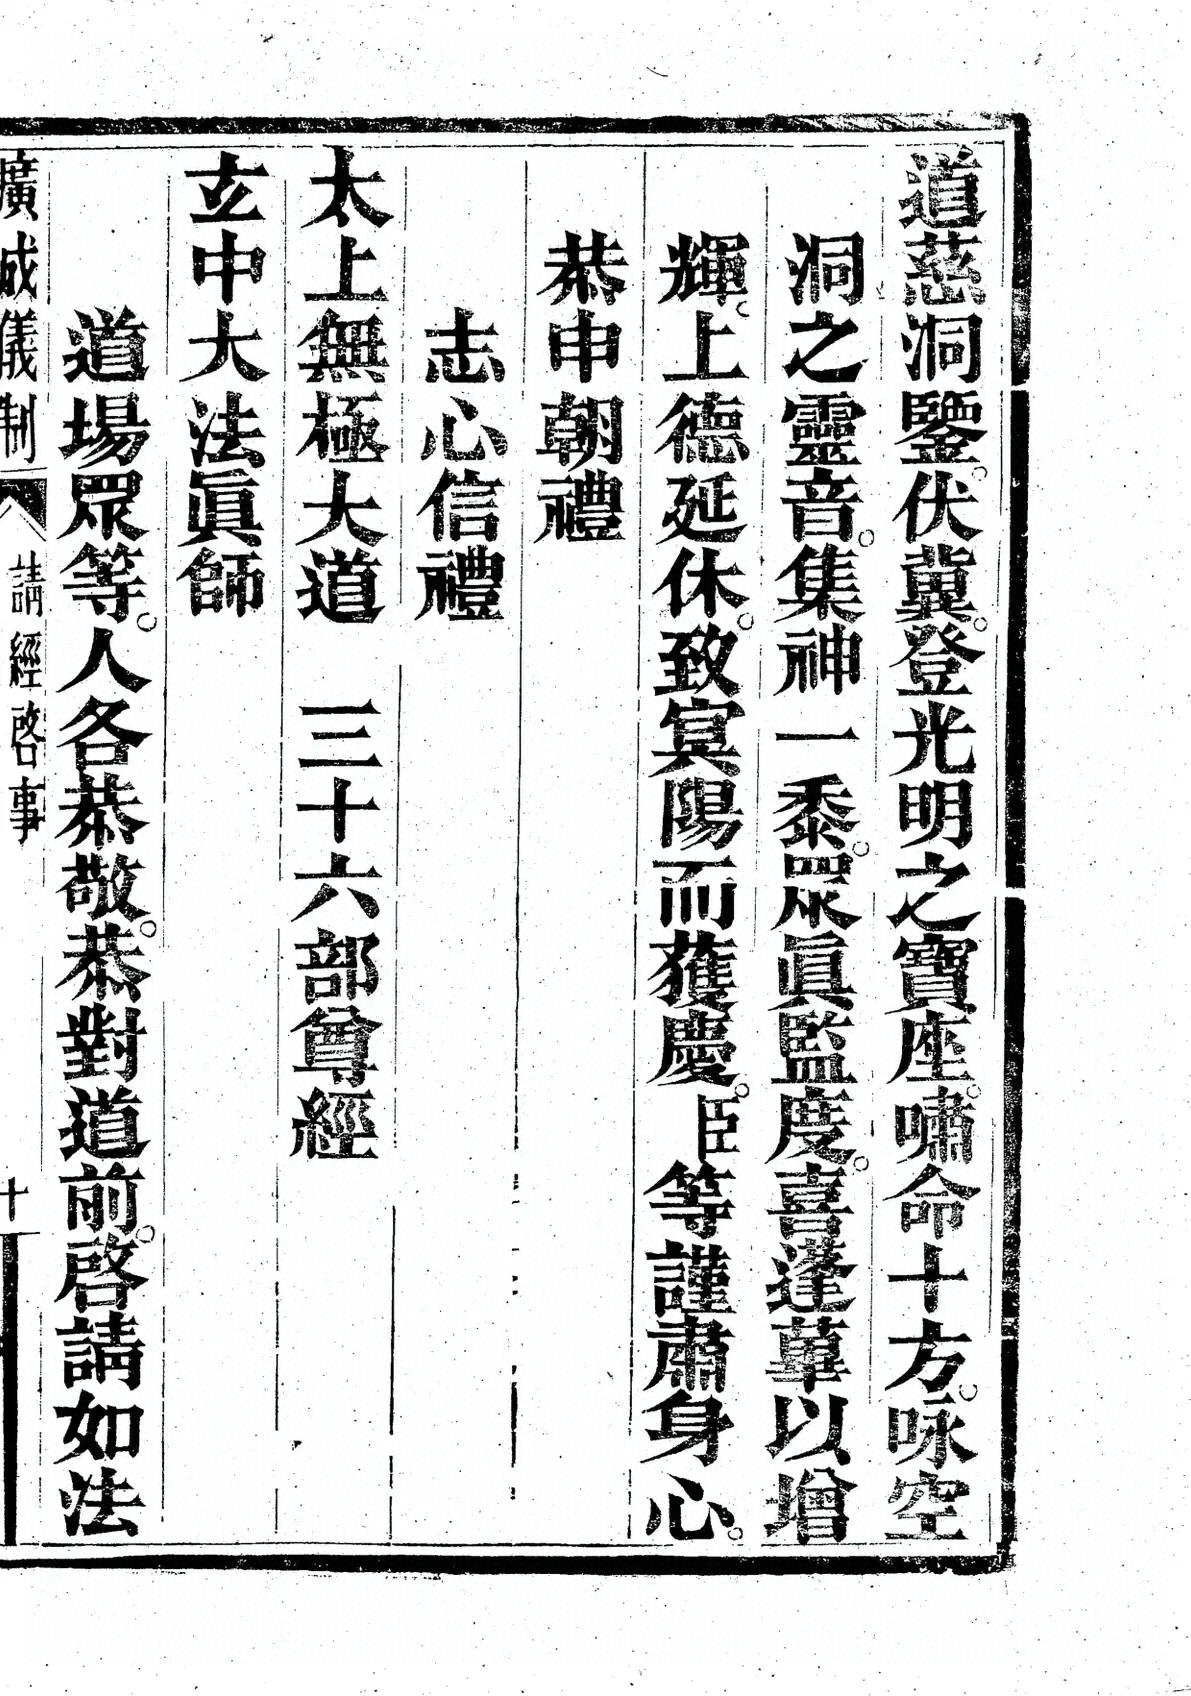 道慈洞鑒。伏冀。登光明之寶座。嘯命十方。咏空
洞之靈音。集神一黍。眾眞監度。喜蓬蓽以增
輝。上德延休。致冥陽而獲慶。臣等謹肅身心。
恭申朝禮
志心信禮
太上無極大道　三十六部尊經
玄中大法眞師
道場眾等。人各恭敬。恭對道前。啓請如法
廣成儀制　請經啓事　十